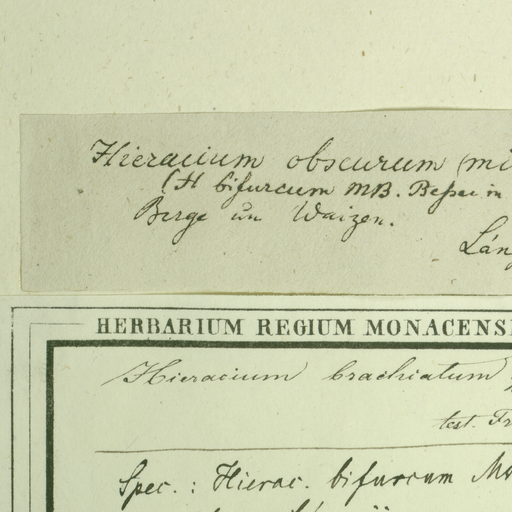 Hieracium obscurum (mi
(H bifurcum MB. Besser in
Berge um Waizen.
Láng
HERBARIUM REGIUM MONACENS
Hieracium brachiatum
test. Fr
Spec. : Hierac. bifurcum